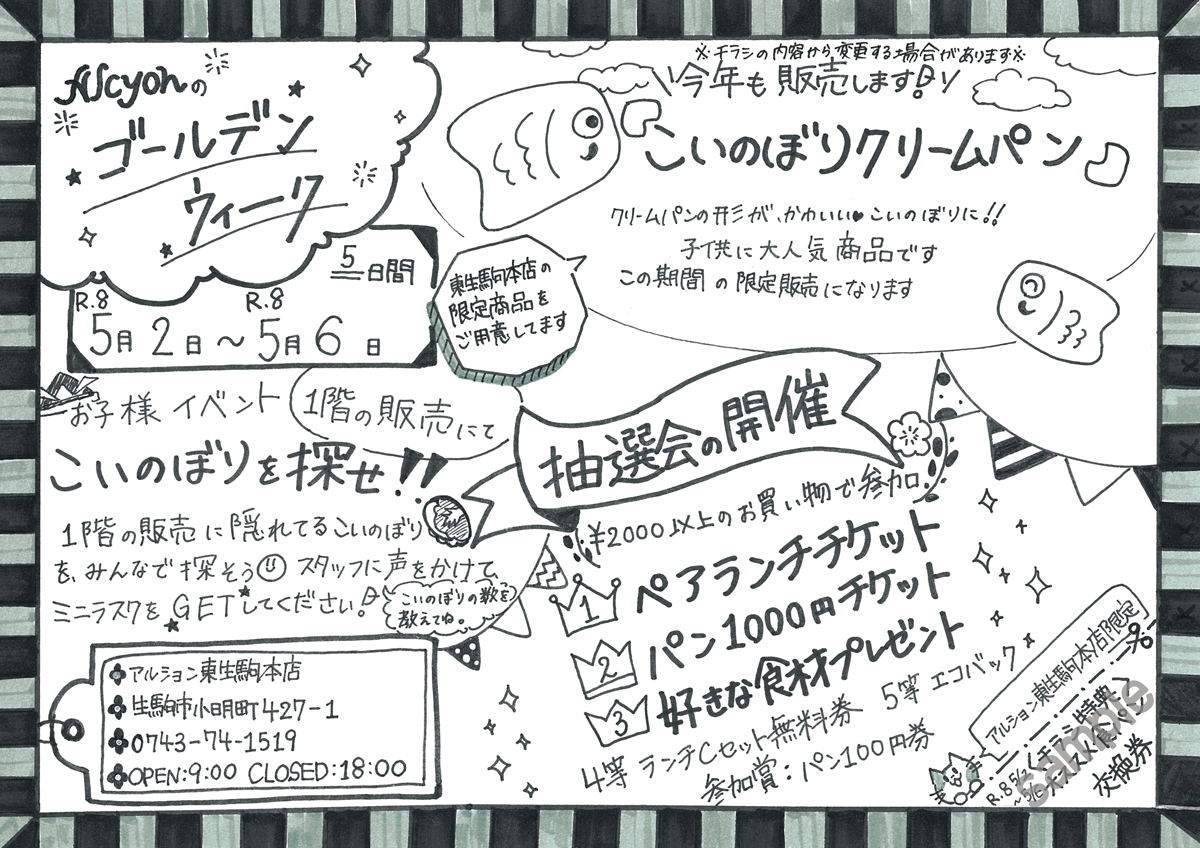 Alcyonの
ゴールデン
ウィーク
5日間
R.8 R.8
5月2日～5月6日
※チラシの内容から変更する場合があります※
今年も販売します!
こいのぼりクリームパン
クリームパンの形が、かわいい♥こいのぼりに!!
子供に大人気商品です
この期間の限定販売になります
東生駒本店の
限定商品を
ご用意してます
お子様イベント
1階の販売にて
こいのぼりを探せ!!
1階の販売に隠れてるこいのぼり
を、みんなで探そう スタッフに声をかけて、
ミニラスクをGETしてください!
こいのぼりの数を
教えてね。
抽選会の開催
¥2000以上のお買い物で参加
1 ペアランチチケット
2 パン1000円チケット
3 好きな食材プレゼント
4等 ランチCセット無料券 5等 エコバック
参加賞:パン100円券
アルション東生駒本店
生駒市小明町427-1
0743-74-1519
OPEN:9:00 CLOSED:18:00
アルション東生駒本店限定
チラシ特典
R.8 5/2
交換券
Sample